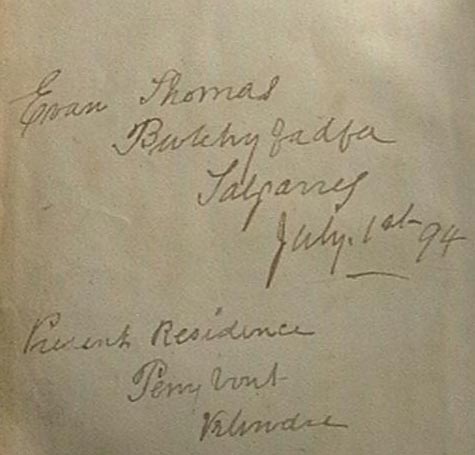 Evan Thomas
Bwlchygadfa
Talgarreg
July. 1st 94
Present Residence
Penybont
Velindre